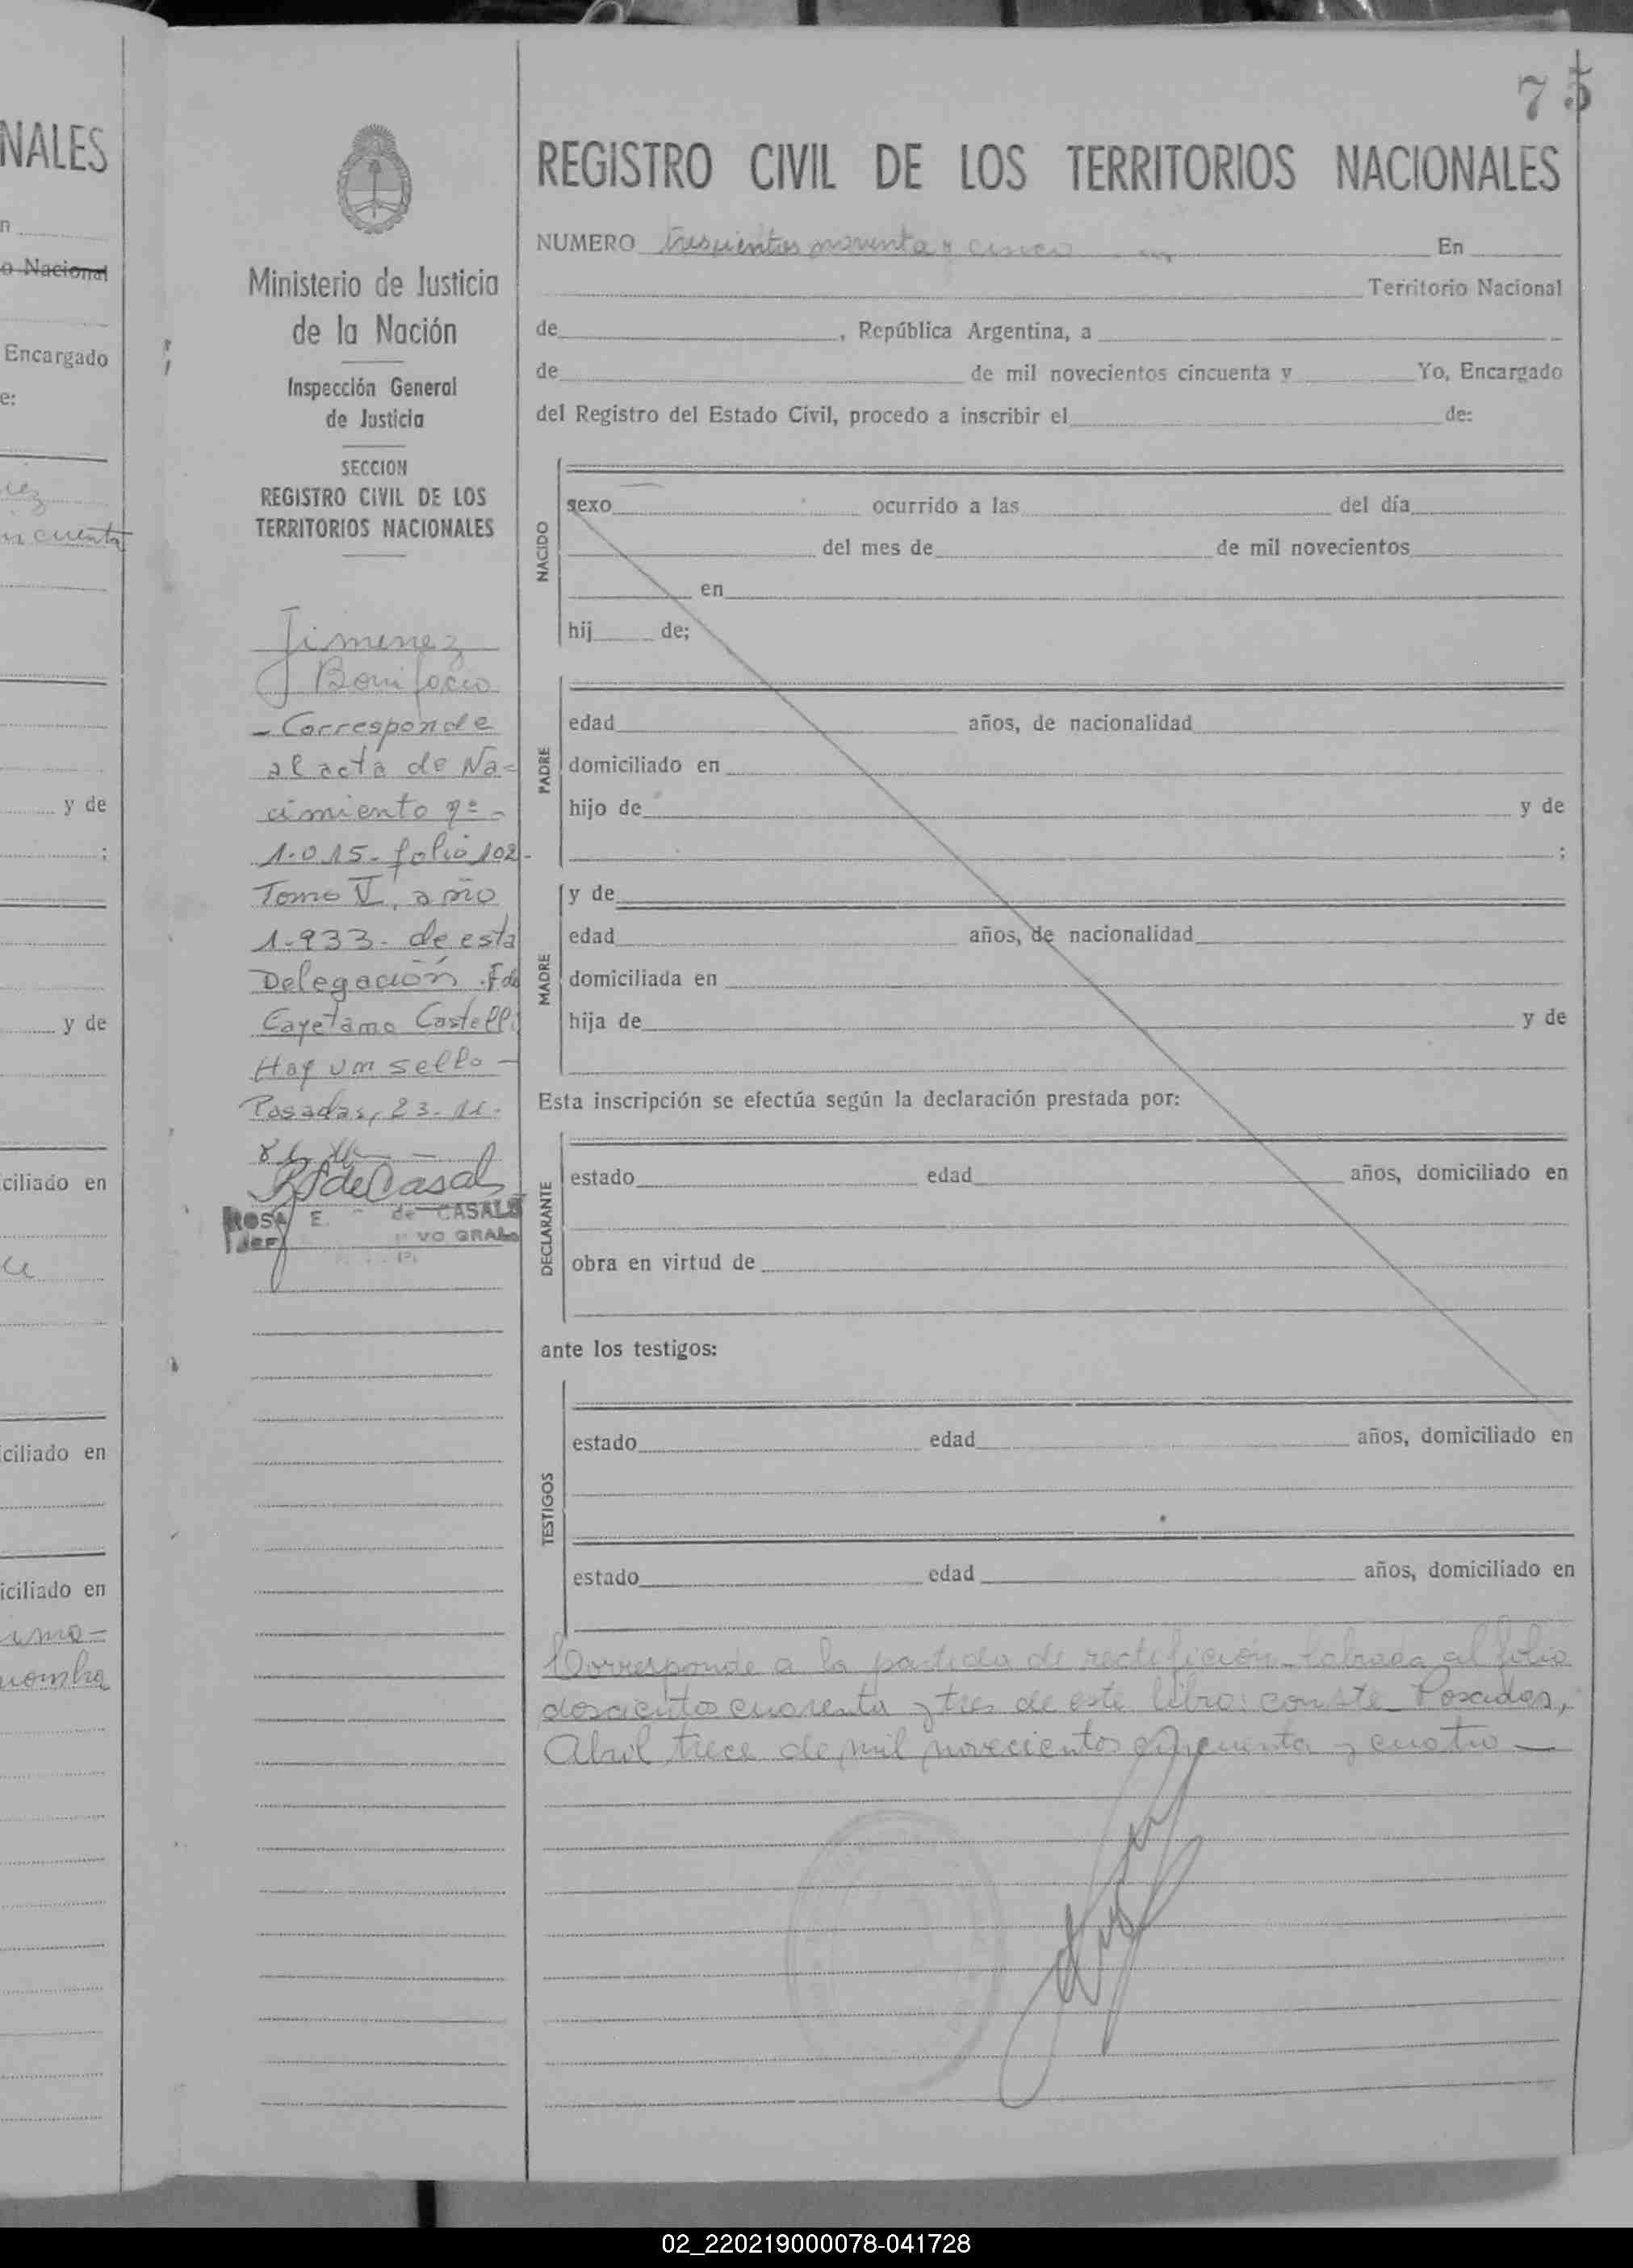 NALES
n
o Nacional
Encargado
e:
uez
incuenta
y de
;
y de
ciliado en
ce
ciliado en
iciliado en
nombra
75
Ministerio de Justicia
de la Nación
Inspección General
de Justicia
SECCION
REGISTRO CIVIL DE LOS
TERRITORIOS NACIONALES
Jimenez
Bonifacio
- Corresponde
al acta de Na-
cimiento nº -
1.015- folio 102-
Tomo V, año
1.933- de esta
Delegación. Fdo
Cayetano Castelli
Hay un sello -
Posadas, 23-11-
ROSA E. de CASALS
Jef VO GRAL.
REGISTRO CIVIL DE LOS TERRITORIOS NACIONALES
NUMERO trescientos noventa y cinco En
Territorio Nacional
de , República Argentina, a
de de mil novecientos cincuenta y Yo, Encargado
del Registro del Estado Civil, procedo a inscribir el de:
NACIDO
sexo ocurrido a las del día
del mes de de mil novecientos
en
hij de;
PADRE
edad años, de nacionalidad
domiciliado en
hijo de y de
;
y de
MADRE
edad años, de nacionalidad
domiciliada en
hija de y de
Esta inscripción se efectúa según la declaración prestada por:
DECLARANTE
estado edad años, domiciliado en
obra en virtud de
ante los testigos:
TESTIGOS
estado edad años, domiciliado en
estado edad años, domiciliado en
Corresponde a la partida de rectificación labrada al folio
doscientos cuarenta y tres de este libro: conste Posadas,
Abril trece de mil novecientos cincuenta y cuatro —
02_220219000078-041728